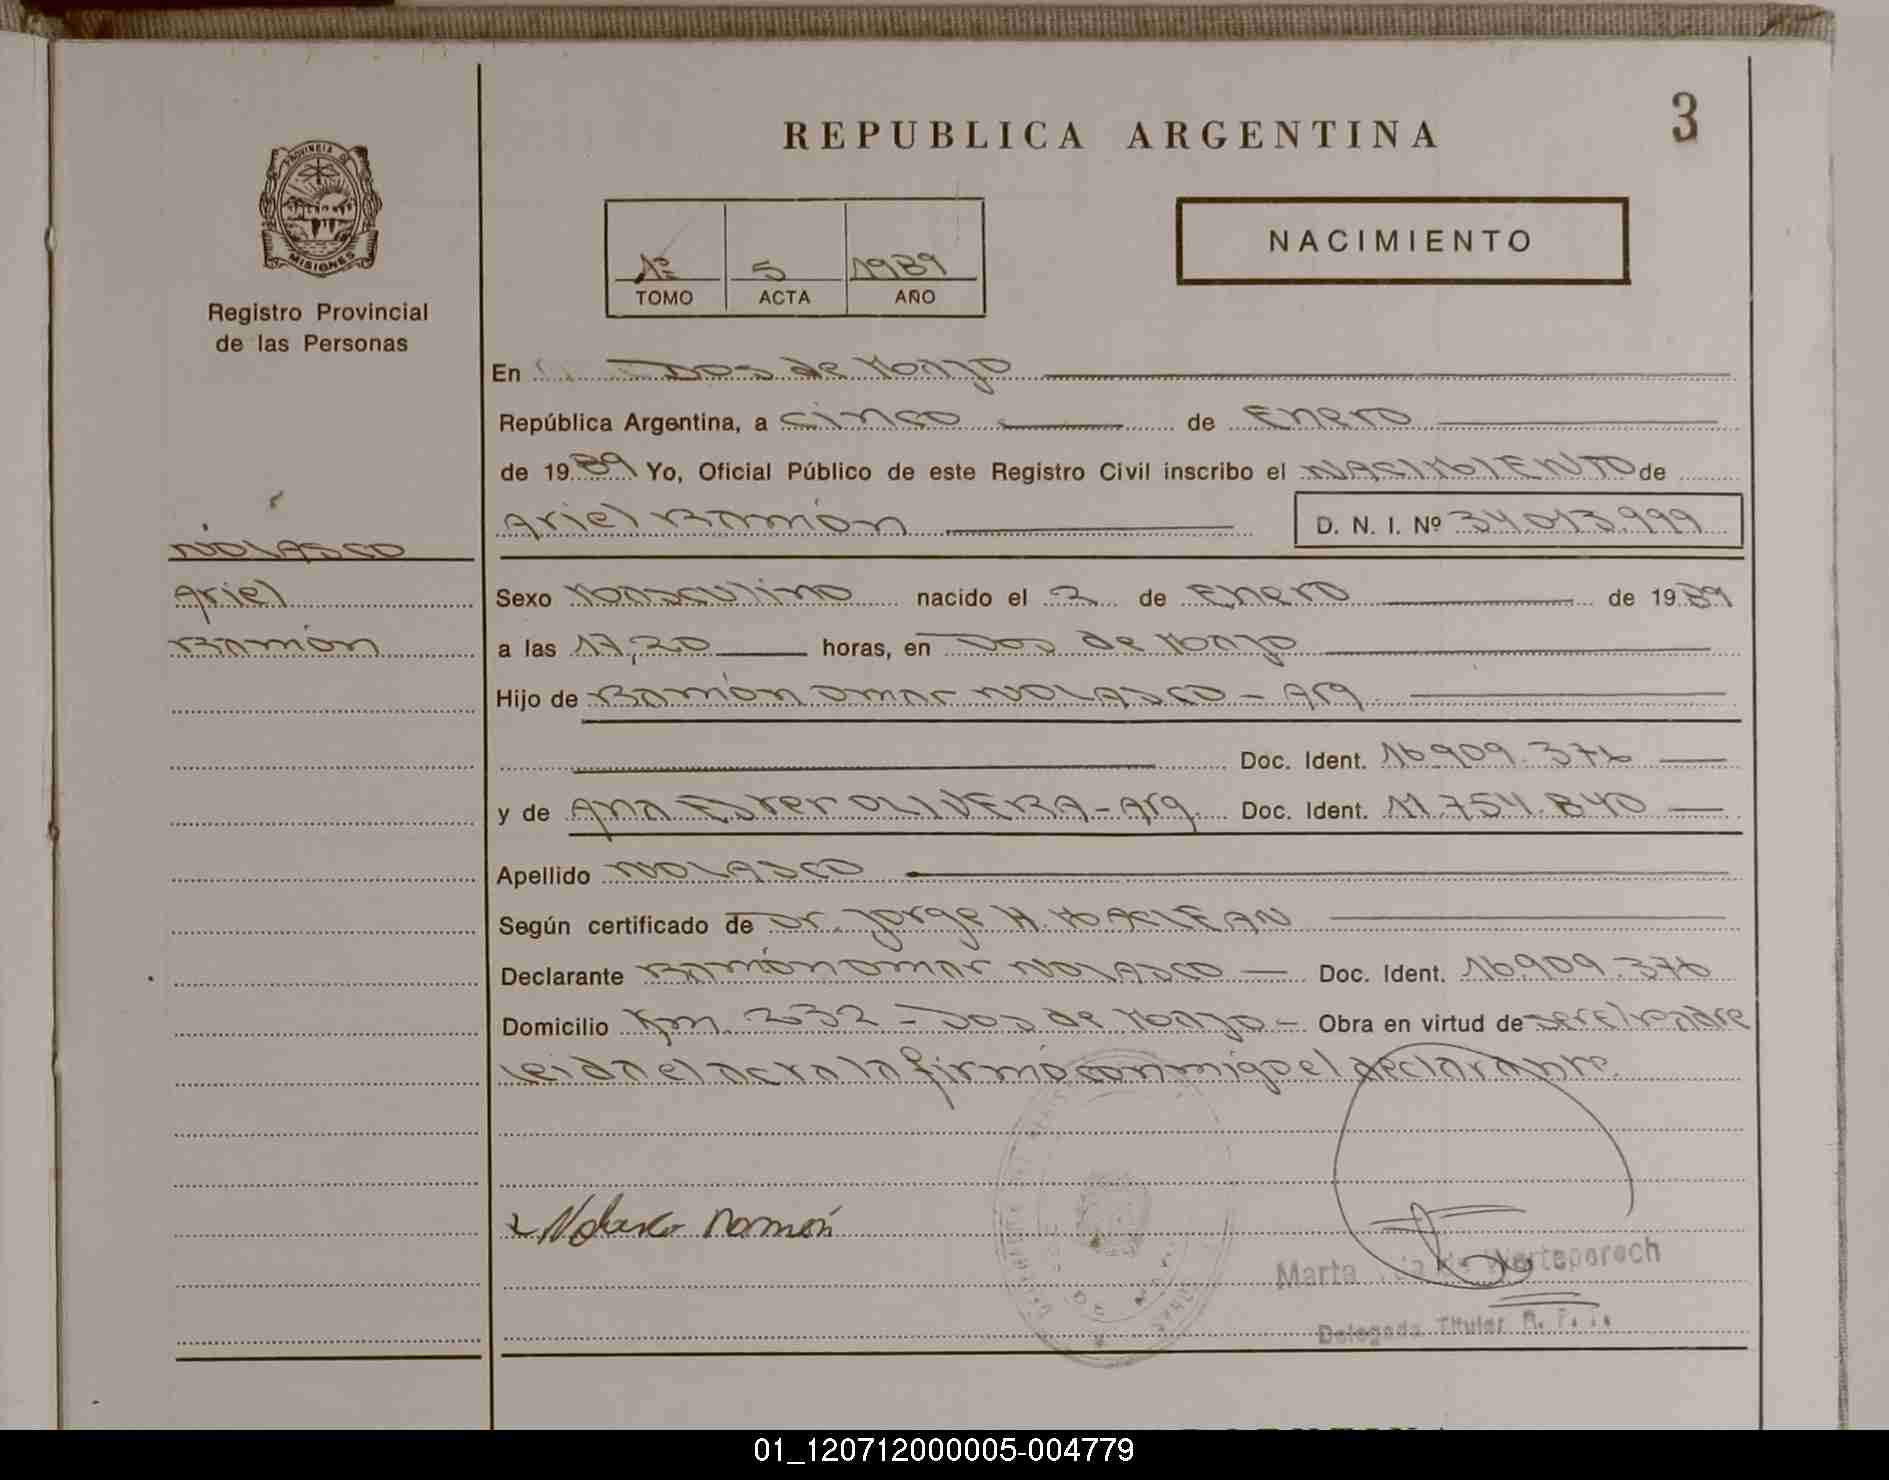 3
REPUBLICA ARGENTINA
PROVINCIA DE
MISIONES
Registro Provincial
de las Personas
1º 5 1989
TOMO ACTA AÑO
NACIMIENTO
En Dos de Mayo
República Argentina, a cinco de Enero
de 1989 Yo, Oficial Público de este Registro Civil inscribo el NACIMIENTO de
Ariel Ramón D. N. I. Nº 34.013.999
NOLASCO
Ariel
Ramón
Sexo Masculino nacido el 2 de Enero de 1989
a las 17,20 horas, en Dos de Mayo
Hijo de Ramón Omar NOLASCO - Arg
Doc. Ident. 16.909.376
y de Ana Ester OLIVERA - Arg. Doc. Ident. 11.754.840
Apellido NOLASCO
Según certificado de Dr. Jorge H. MACLEAN
Declarante Ramón Omar NOLASCO Doc. Ident. 16.909.376
Domicilio Km. 232 - Dos de Mayo - Obra en virtud de ser el padre
leida el acta la firmó conmigo el declarante.
Nolasco Ramón
Marta de
Delegada Titular R. P. P.
01_120712000005-004779